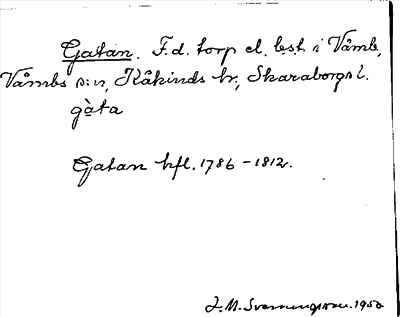 Gatan. F.d. torp el. bst. i Våmb,
Våmbs s:n, Kåkinds hr, Skaraborgs l.
gàta
Gatan hfl. 1786-1812.
J. M. Svenningsson. 1950